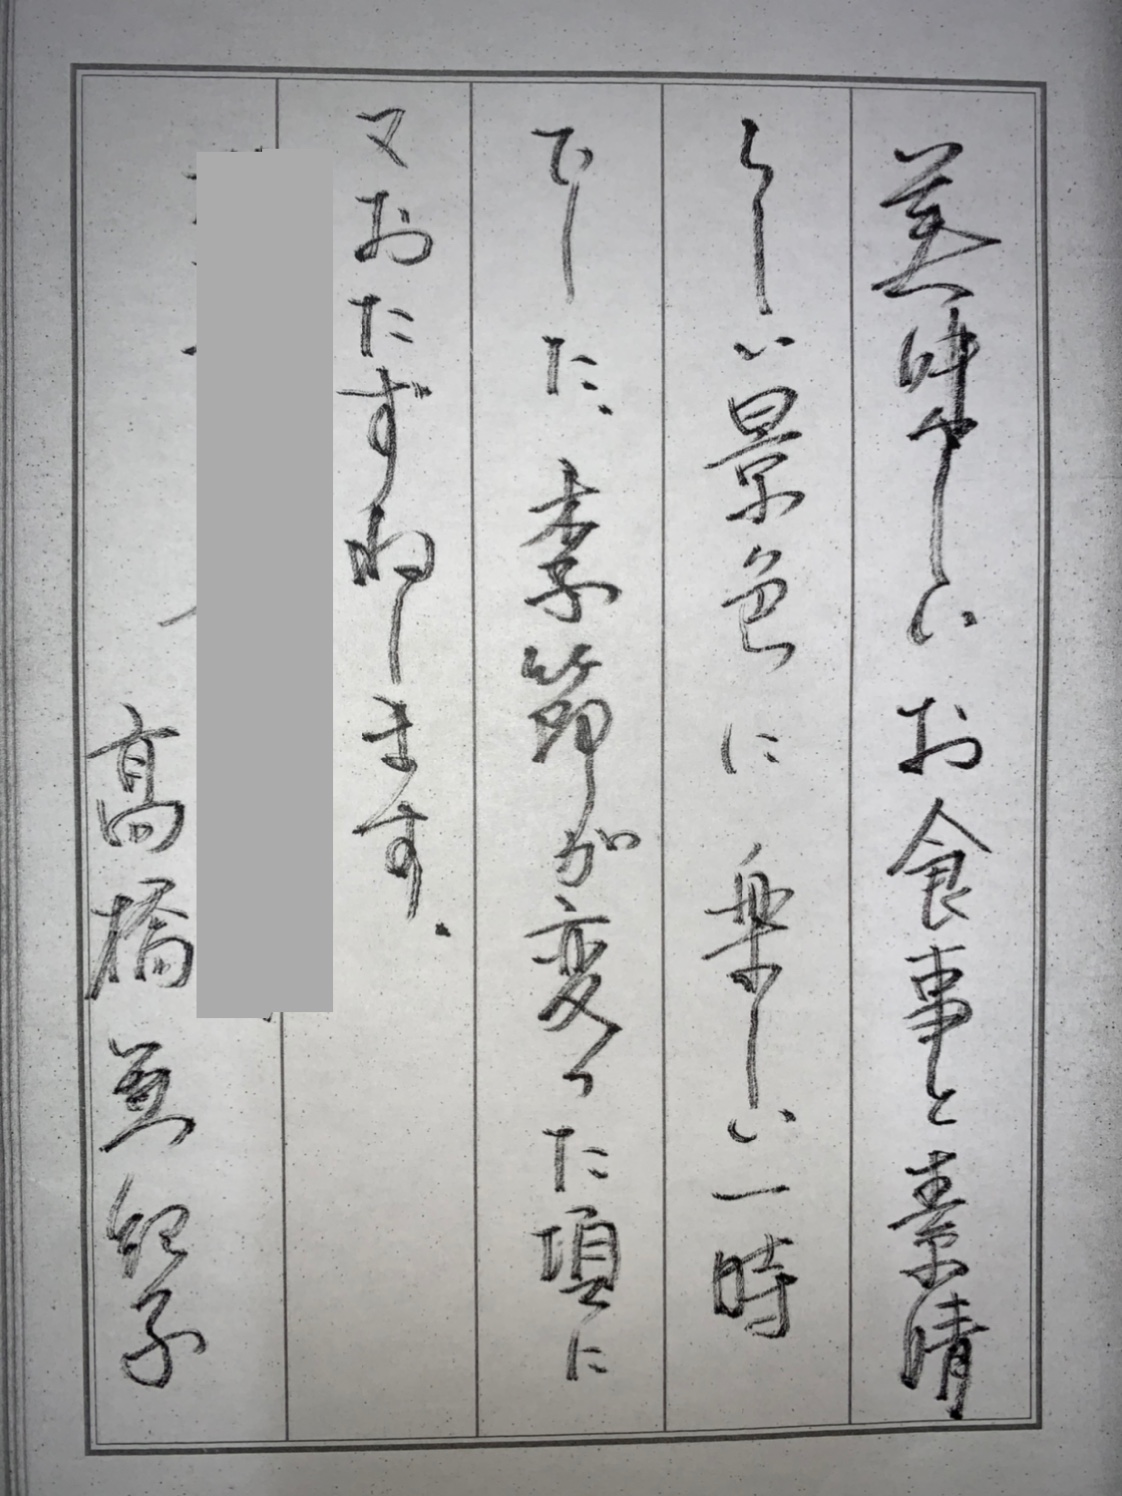 美味しい お食事と素晴
らしい景色に 楽しい一時
でした、季節が変った頃に
又おたずねします.
高橋 紀子